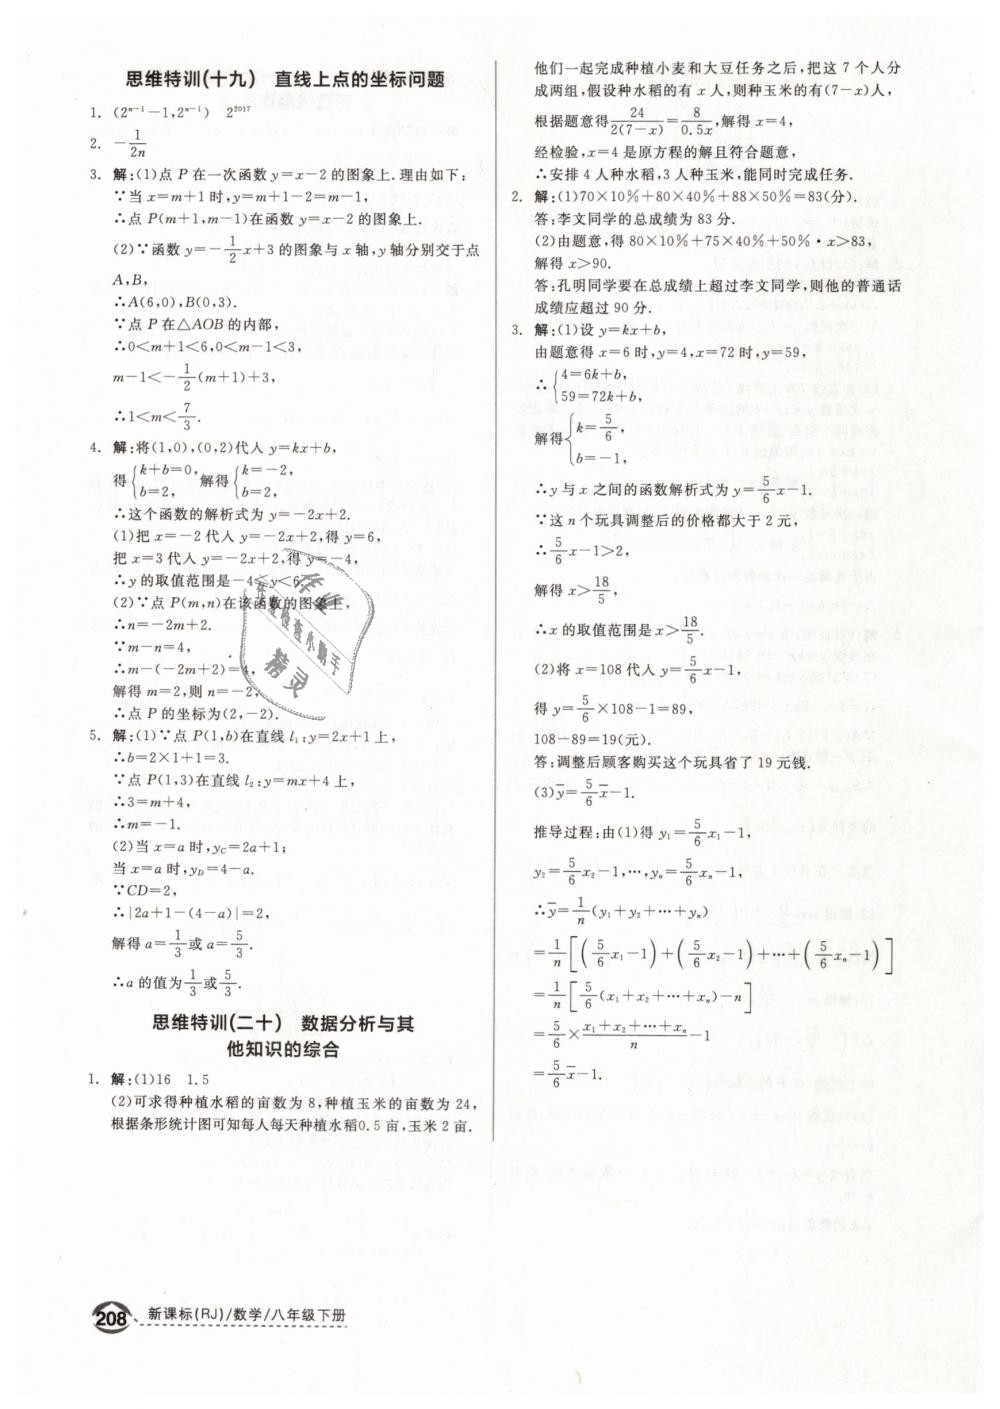 思维特训(十九)　直线上点的坐标问题
1. (2ⁿ⁻¹-1,2ⁿ⁻¹)　2²⁰¹⁷
2. -1/(2n)
3. 解:(1)点 P 在一次函数 y=x-2 的图象上.理由如下:
∵当 x=m+1 时,y=m+1-2=m-1,
∴点 P(m+1,m-1)在函数 y=x-2 的图象上.
(2)∵函数 y=-1/2x+3 的图象与 x 轴,y 轴分别交于点
A,B,
∴A(6,0),B(0,3).
∵点 P 在△AOB 的内部,
∴0<m+1<6,0<m-1<3,
m-1<-1/2(m+1)+3,
∴1<m<7/3.
4. 解:将(1,0),(0,2)代人 y=kx+b,
得{k+b=0, b=2, 解得{k=-2, b=2,
∴这个函数的解析式为 y=-2x+2.
(1)把 x=-2 代人 y=-2x+2,得 y=6,
把 x=3 代人 y=-2x+2,得 y=-4,
∴y 的取值范围是-4≤y<6.
(2)∵点 P(m,n)在该函数的图象上,
∴n=-2m+2.
∵m-n=4,
∴m-(-2m+2)=4,
解得 m=2,则 n=-2,
∴点 P 的坐标为(2,-2).
5. 解:(1)∵点 P(1,b)在直线 l₁:y=2x+1 上,
∴b=2×1+1=3.
∵点 P(1,3)在直线 l₂:y=mx+4 上,
∴3=m+4,
∴m=-1.
(2)当 x=a 时,y_C=2a+1;
当 x=a 时,y_D=4-a.
∵CD=2,
∴|2a+1-(4-a)|=2,
解得 a=1/3或 a=5/3.
∴a 的值为1/3或5/3.
思维特训(二十)　数据分析与其
他知识的综合
1. 解:(1)16　1.5
(2)可求得种植水稻的亩数为 8,种植玉米的亩数为 24,
根据条形统计图可知每人每天种植水稻0.5 亩,玉米 2 亩.
他们一起完成种植小麦和大豆任务之后,把这 7 个人分
成两组,假设种水稻的有 x 人,则种玉米的有(7-x)人,
根据题意得24/(2(7-x))=8/(0.5x),解得 x=4,
经检验,x=4 是原方程的解且符合题意,
∴安排 4 人种水稻,3 人种玉米,能同时完成任务.
2. 解:(1)70×10%+80×40%+88×50%=83(分).
答:李文同学的总成绩为 83 分.
(2)由题意,得 80×10%+75×40%+50%·x>83,
解得 x>90.
答:孔明同学要在总成绩上超过李文同学,则他的普通话
成绩应超过 90 分.
3. 解:(1)设 y=kx+b,
由题意得 x=6 时,y=4,x=72 时,y=59,
∴{4=6k+b, 59=72k+b,
解得{k=5/6, b=-1,
∴y 与 x 之间的函数解析式为 y=5/6x-1.
∵这 n 个玩具调整后的价格都大于 2 元,
∴5/6x-1>2,
解得 x>18/5,
∴x 的取值范围是 x>18/5.
(2)将 x=108 代人 y=5/6x-1,
得 y=5/6×108-1=89,
108-89=19(元).
答:调整后顾客购买这个玩具省了 19 元钱.
(3)y̅=5/6x̅-1.
推导过程:由(1)得 y₁=5/6x₁-1,
y₂=5/6x₂-1,…,yₙ=5/6xₙ-1,
∴y̅=1/n(y₁+y₂+…+yₙ)
=1/n[(5/6x₁-1)+(5/6x₂-1)+…+(5/6xₙ-1)]
=1/n[5/6(x₁+x₂+…+xₙ)-n]
=5/6×(x₁+x₂+…+xₙ)/n-1
=5/6x̅-1.
作业
作业检查小助手
精灵
208 新课标(RJ)/数学/八年级下册